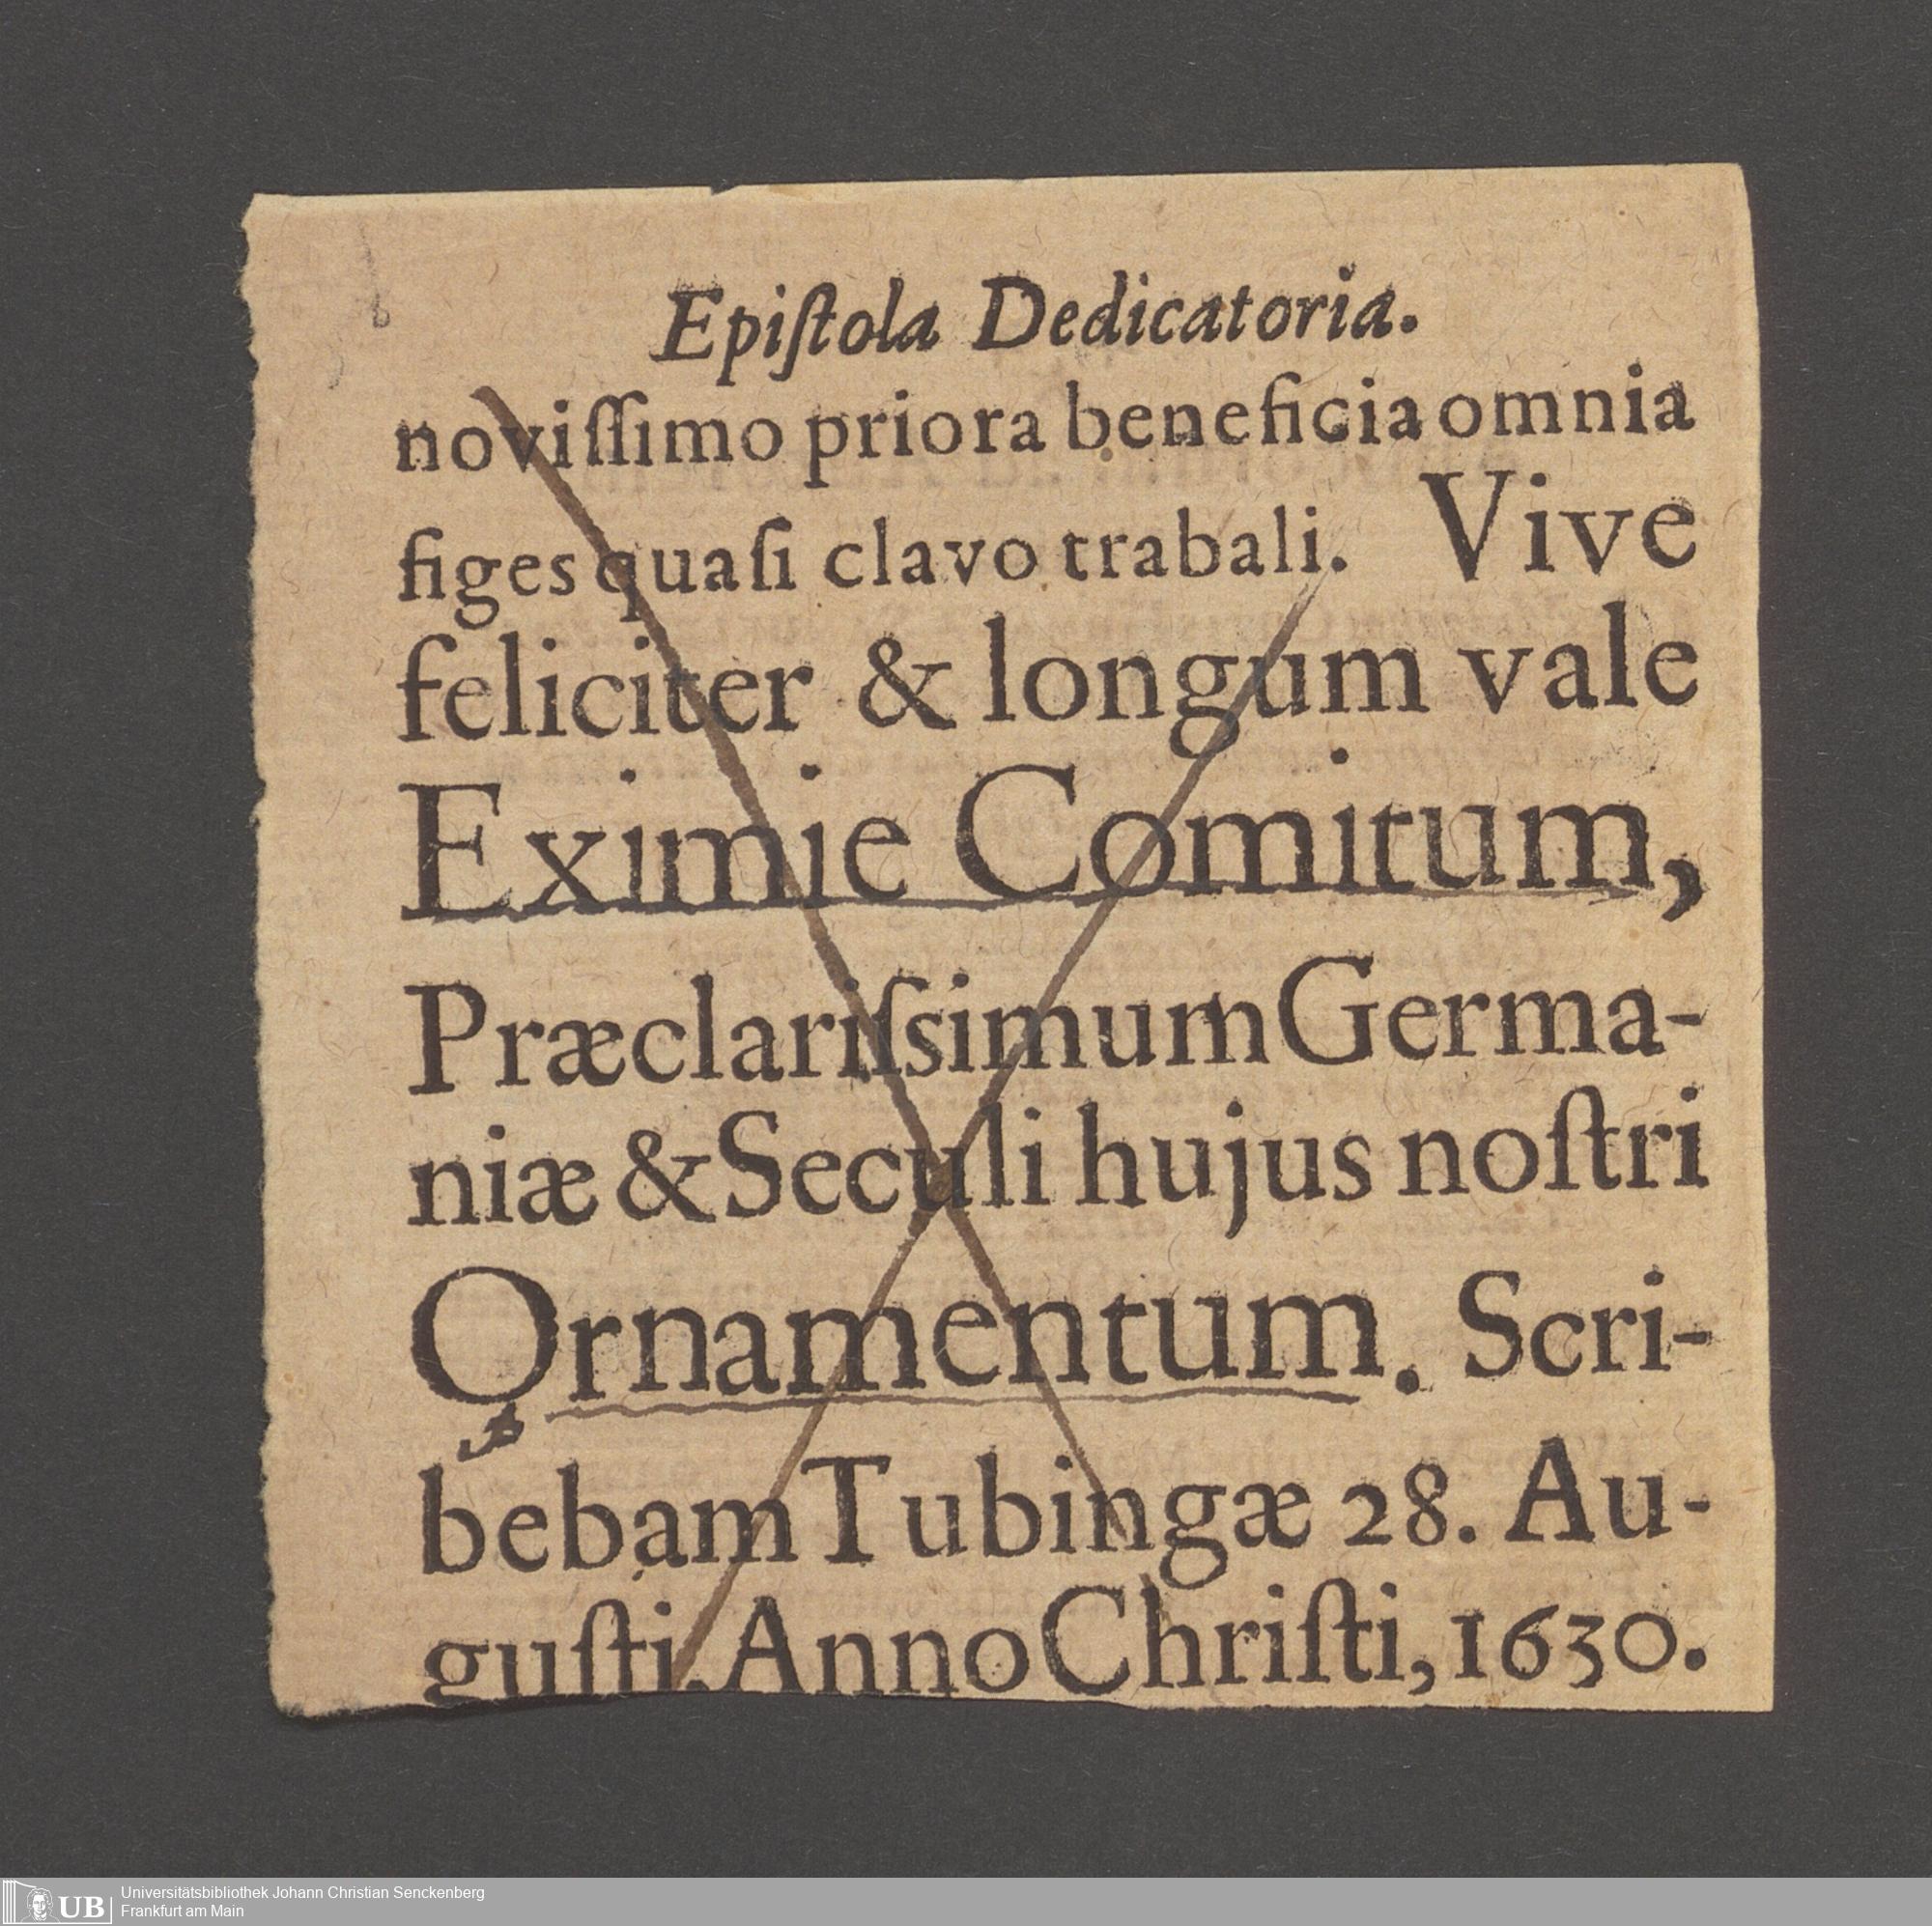 Epiſtola Dedicatoria.
noviſſimo priora beneficia omnia
figes quaſi clavo trabali. Vive
feliciter & longum vale
Eximie Comitum,
Præclariſsimum Germa-
niæ & Seculi hujus noſtri
Ornamentum. Scri-
bebam Tubingæ 28. Au-
guſti. Anno Chriſti, 1630.
UB
Universitätsbibliothek Johann Christian Senckenberg
Frankfurt am Main